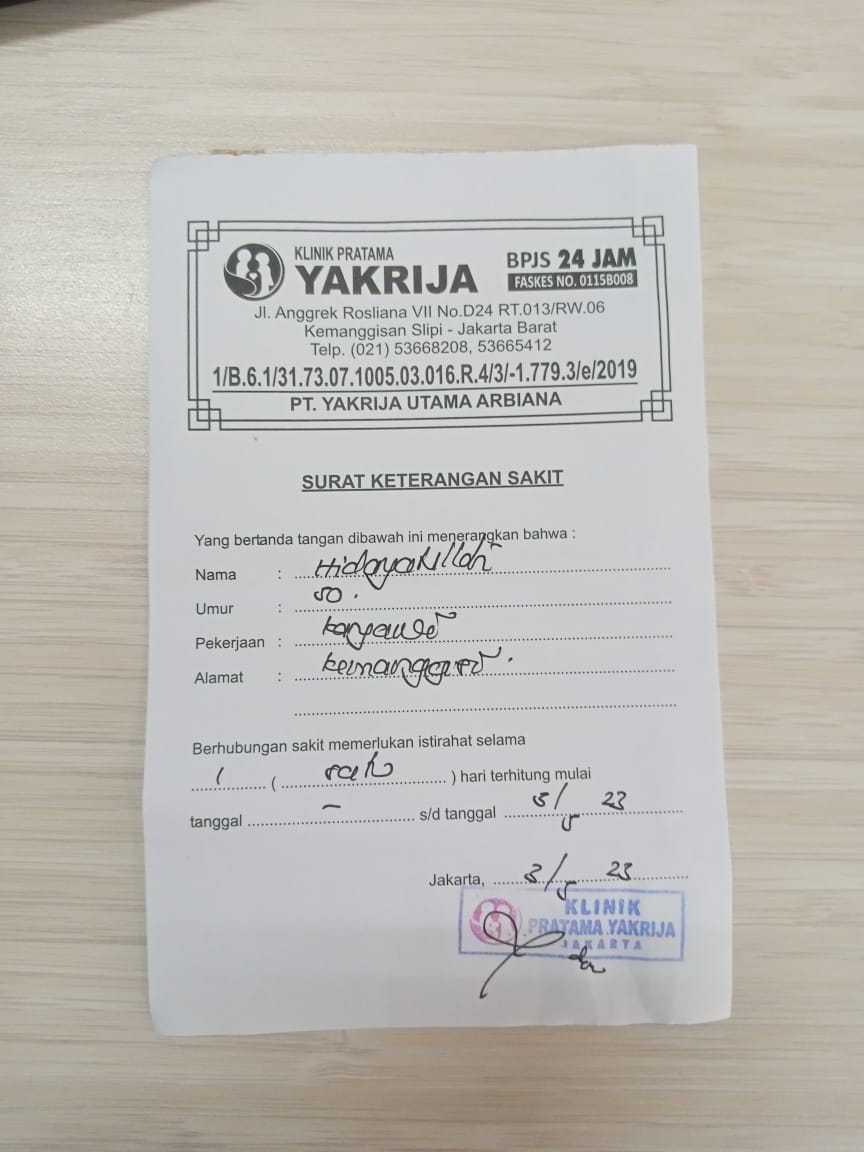 KLINIK PRATAMA
YAKRIJA
BPJS 24 JAM
FASKES NO. 0115B008
Jl. Anggrek Rosliana VII No.D24 RT.013/RW.06
Kemanggisan Slipi - Jakarta Barat
Telp. (021) 53668208, 53665412
1/B.6.1/31.73.07.1005.03.016.R.4/3/-1.779.3/e/2019
PT. YAKRIJA UTAMA ARBIANA
SURAT KETERANGAN SAKIT
Yang bertanda tangan dibawah ini menerangkan bahwa :
Nama : Hidayatilloh
Umur : 50.
Pekerjaan :
Alamat :
Berhubungan sakit memerlukan istirahat selama
1 ( satu ) hari terhitung mulai
tanggal - s/d tanggal 3/5 23
Jakarta, 3/5 23
KLINIK
PRATAMA YAKRIJA
JAKARTA